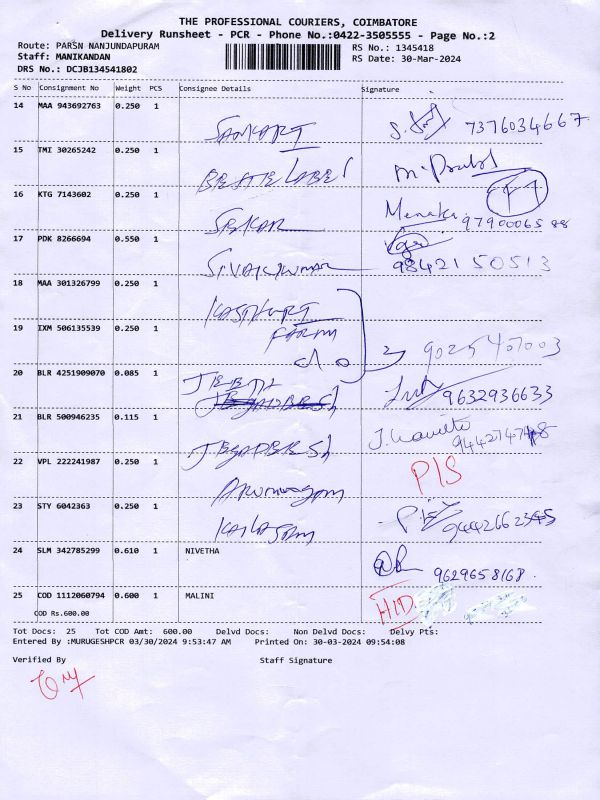 THE PROFESSIONAL COURIERS, COIMBATORE
Delivery Runsheet - PCR - Phone No.:0422-3505555 - Page No.:2
Route: PARSN NANJUNDAPURAM RS No.: 1345418
Staff: MANIKANDAN RS Date: 30-Mar-2024
DRS No.: DCJB134541802
S No Consignment No Weight PCS Consignee Details Signature
14 MAA 943692763 0.250 1
SANKARI 7376034667
15 TMI 30265242 0.250 1
BESTIE LABEL
16 KTG 7143602 0.250 1
SEKAR Menaka 9790006588
17 PDK 8266694 0.550 1
SIVAKUMAR 9842150513
18 MAA 301326799 0.250 1
KASTHURI
19 IXM 506135539 0.250 1
FARM
9025407003
20 BLR 4251909070 0.085 1
9632936633
21 BLR 500946235 0.115 1
22 VPL 222241987 0.250 1
P/S
Arumugam
23 STY 6042363 0.250 1
KAILASAM
24 SLM 342785299 0.610 1 NIVETHA
9629658168
25 COD 1112060794 0.600 1 MALINI
COD Rs.600.00
Tot Docs: 25 Tot COD Amt: 600.00 Delvd Docs: Non Delvd Docs: Delvy Pts:
Entered By :MURUGESHPCR 03/30/2024 9:53:47 AM Printed On: 30-03-2024 09:54:08
Verified By Staff Signature